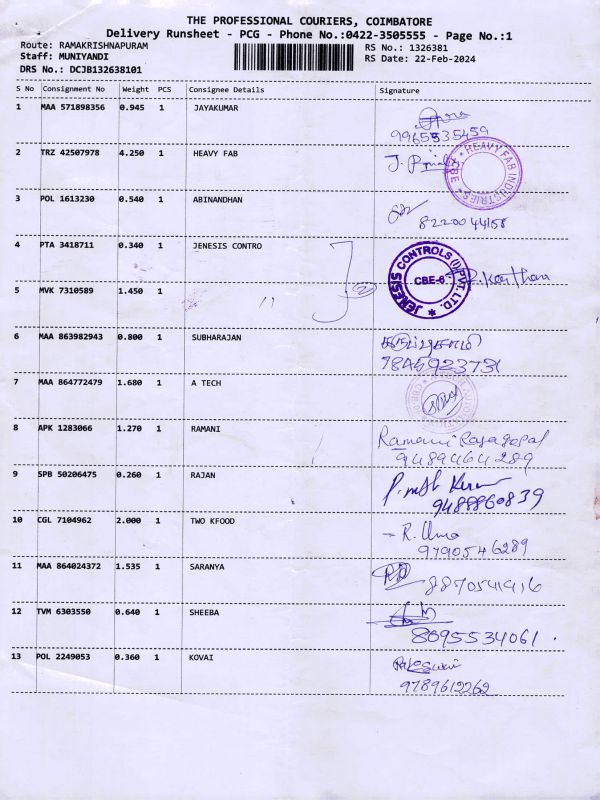 THE PROFESSIONAL COURIERS, COIMBATORE
Delivery Runsheet - PCG - Phone No.:0422-3505555 - Page No.:1
Route: RAMAKRISHNAPURAM
RS No.: 1326381
Staff: MUNIYANDI
RS Date: 22-Feb-2024
DRS No.: DCJB132638101
S No Consignment No Weight PCS Consignee Details Signature
1 MAA 571898356 0.945 1 JAYAKUMAR
9965535459
2 TRZ 42507978 4.250 1 HEAVY FAB
HEAVY FAB INDUSTRIES * CBE *
3 POL 1613230 0.540 1 ABINANDHAN
8220044158
4 PTA 3418711 0.340 1 JENESIS CONTRO
JENESIS CONTROLS (I) PVT. LTD. *
CBE-6
5 MVK 7310589 1.450 1 "
6 MAA 863982943 0.800 1 SUBHARAJAN
7845923731
7 MAA 864772479 1.680 1 A TECH
8 APK 1283066 1.270 1 RAMANI
Ramani Rajagopal
9489464289
9 SPB 50206475 0.260 1 RAJAN
9488860839
10 CGL 7104962 2.000 1 TWO KFOOD
- R. Uma
9790546289
11 MAA 864024372 1.535 1 SARANYA
12 TVM 6303550 0.640 1 SHEEBA
8095534061.
13 POL 2249053 0.360 1 KOVAI
9789612262